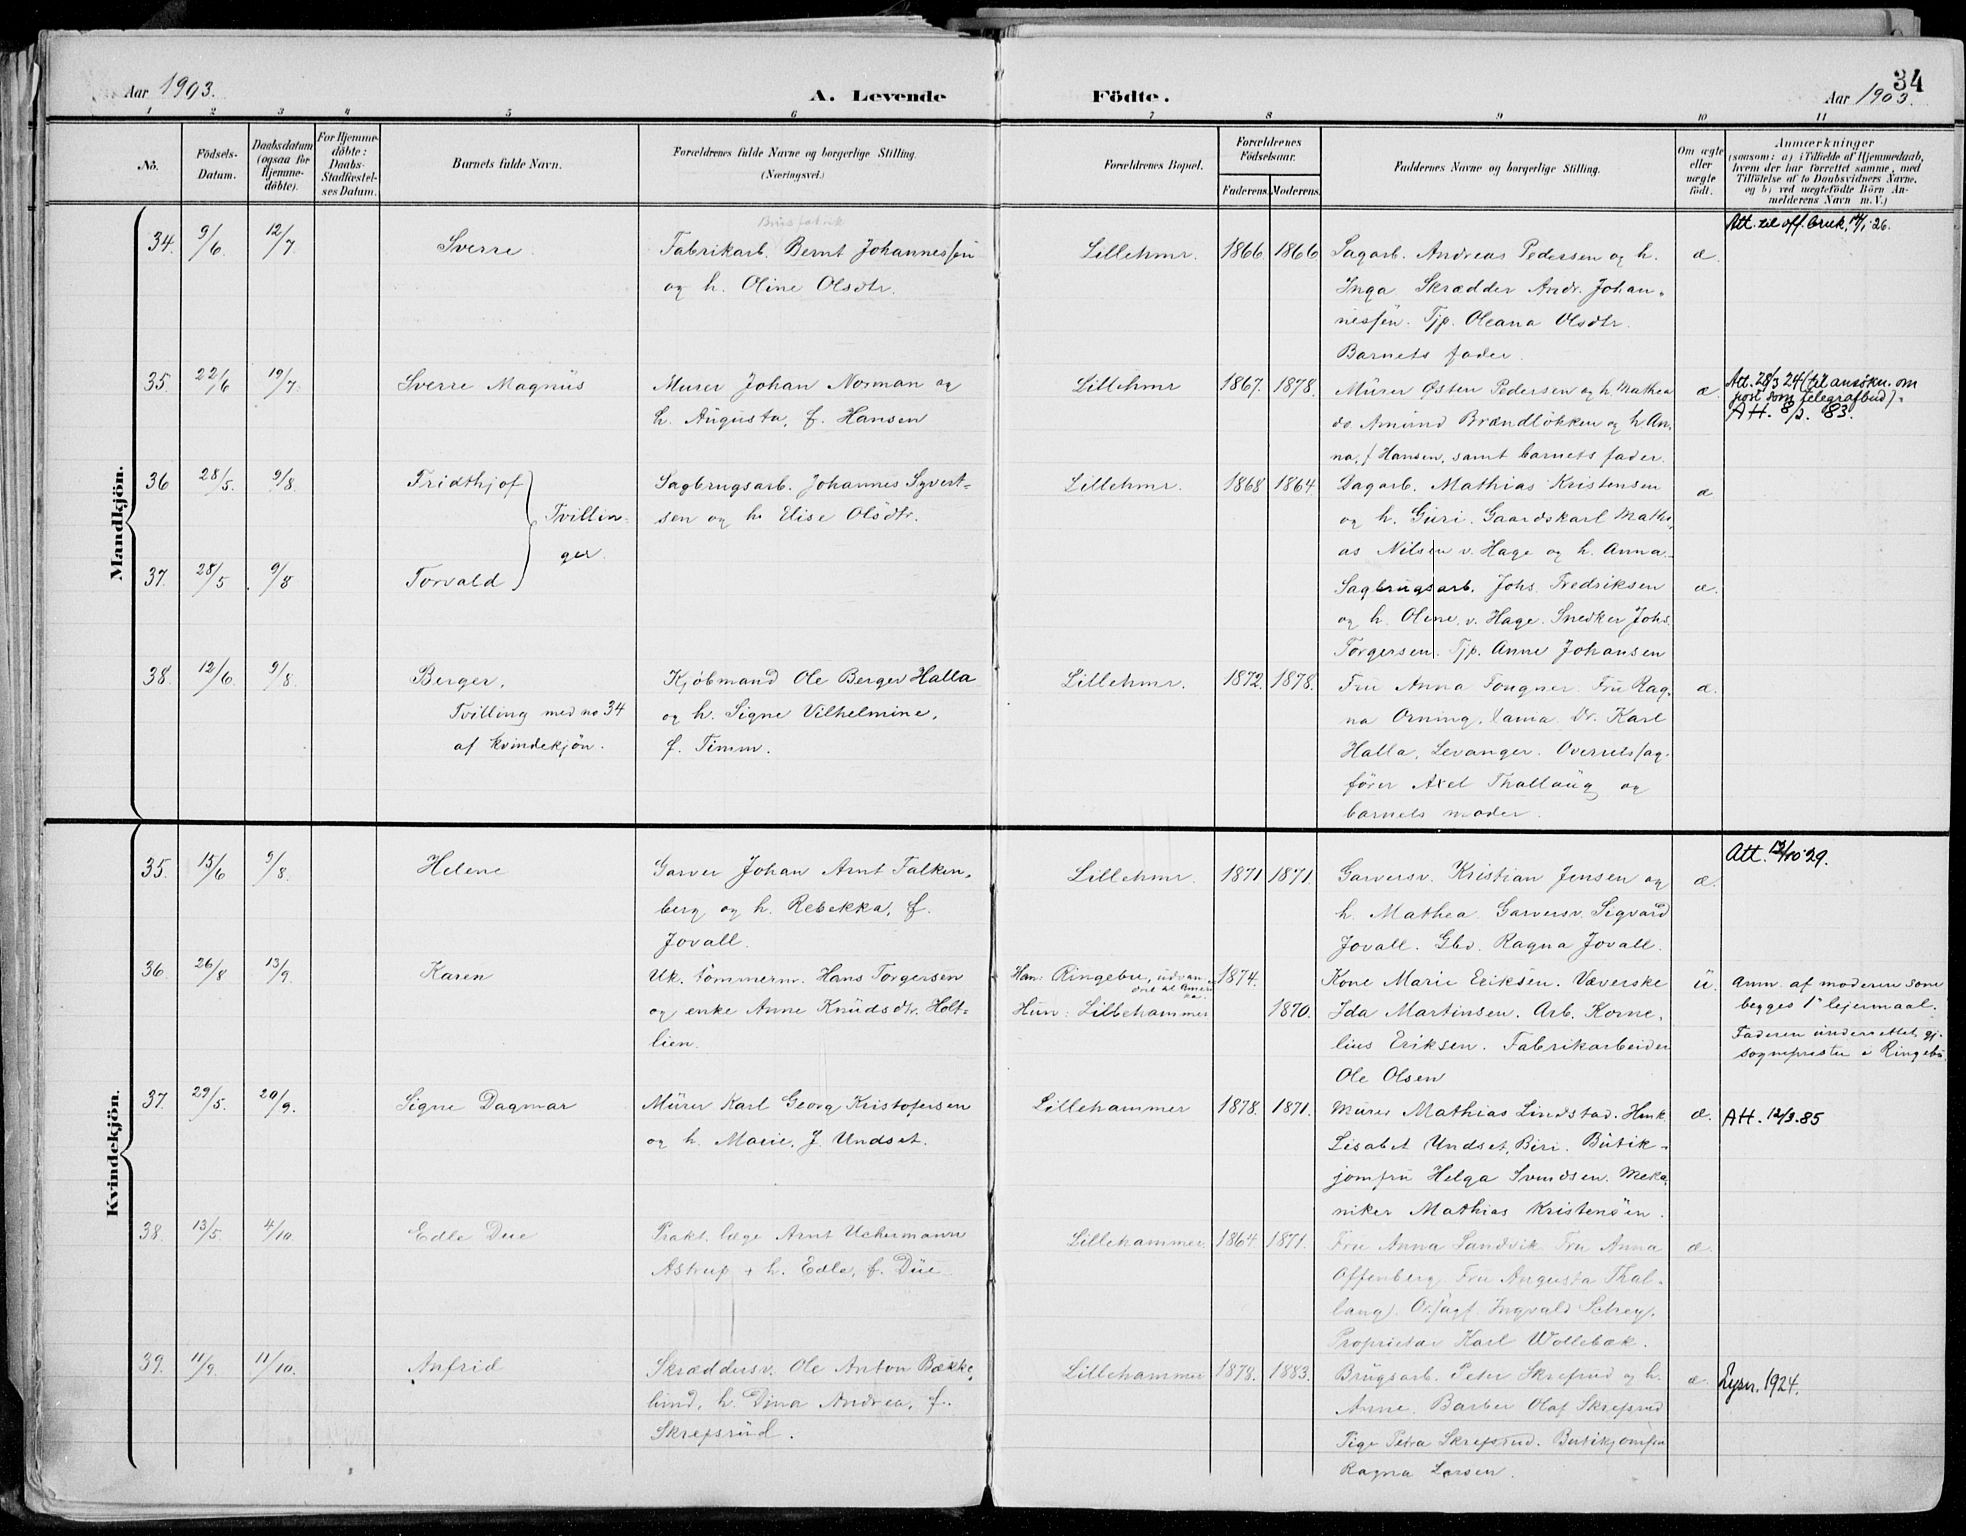 34
Aar 1903.
A. Levende Födte.
Aar 1903.
1 2 3 4 5 6 7 8 9 10 11
No.
Födsels-Datum.
Daabsdatum (ogsaa for Hjemme-döbte).
For Hjemme-döbte: Daabs-Stadfæstel-ses Datum.
Barnets fulde Navn.
Forældrenes fulde Navne og borgerlige Stilling. (Næringsvei.)
Forældrenes Bopæl.
Forældrenes Födselsaar.
Faderens. Moderens.
Faddernes Navne og borgerlige Stilling.
Om ægte eller uægte födt.
Anmærkninger
(saasom: a) i Tilfælde af Hjemmedaab,
hvem der har forrettet samme, med
Tilföielse af to Daabsvidners Navne,
og b) ved uægtefödte Börn An-
melderens Navn m. V.)
Mandkjön.
34. 9/6 12/7 Sverre.
Fabrikarb. Bernt Johannessen
og h. Oline Olsdtr.
Lillehmr. 1866. 1866
Sagarb. Andreas Pedersen og h.
Inga Skrædder Andr. Johan-
nessen. Tjp. Oleana Olsdtr.
Barnets fader.
æ.
Att. til off. bruk, 14/1 26.
35. 22/6 19/7 Sverre Magnus
Murer Johan Norman og
h. Augusta, f. Hansen
Lillehmr 1867. 1878.
Murer Østen Pedersen og h. Mathea
do. Amund Brændløkken og h. An-
na, f Hansen, samt barnets fader.
æ.
Att. 28/3 24 (til ansøkn. om
post som telegrafbud).
Att. 8/2. 83.
36 28/5. 9/8. Fridthjof
Tvillin-
ger.
Sagbrugsarb. Johannes Syvert-
sen og h. Elise Olsdtr.
Lillehmr. 1868 1864.
Dagarb. Mathias Kristensen
og h. Guri. Gaardskarl Mathi-
as Nilsen v. Hage og h. Anna
æ
37. 28/5 9/8 Torvald
Sagbrugsarb. Johs. Fredriksen
og h. Oline, v. Hage. Snedker Johs.
Torgersen. Tjp. Anne Johansen
æ.
38. 12/6. 9/8. Berger,
Tvilling med no 34
af kvindekjøn.
Kjøbmand Ole Berger Halla
og h. Signe Vilhelmine,
f. Timm.
Lillehmr. 1872. 1878.
Fru Anna Tougner. Fru Rag-
na Orning, Dr. Karl
Halla, Levanger. Overretssag-
fører Axel Thallaug og
barnets moder.
æ.
Kvindekjön.
35. 15/6 9/8. Helene
Garver Johan Arnt Falken-
berg og h. Rebekka, f.
Jovall.
Lillehmr. 1871 1871.
Garversv. Kristian Jensen og
h. Mathea. Garversv. Sigvard
Jovall. Gbv. Ragna Jovall.
æ.
Att. 12/10 29.
36. 26/8 13/9. Karen
Uk. tømmerm. Hans Torgersen
og enke Anne Knudsdtr. Holt-
lien.
Han: Ringebu, udvan-
dret til Ameri-
ka.
Hun: Lillehammer
1874. 1870.
Kone Marie Eriksen. Væverske
Ida Martinsen. Arb. Korne-
lius Eriksen. Fabrikarbeider
Ole Olsen
u.
Anm. af moderen som
begges 1ste lejermaal.
Faderen underrettet gj.
sognepresten i Ringebu.
37. 29/5. 20/9. Signe Dagmar
Murer Karl Georg Kristofersen
og h. Marie, f. Undset.
Lillehammer 1878. 1871.
Murer Mathias Lindstad.
Lisabet Undset, Biri. Butik-
jomfru Helga Svendsen. Meka-
niker Mathias Kristensen.
æ.
Att. 12/3.85
38. 13/5. 4/10. Edle Due
Prakt. læge Arnt Uchermann
Astrup + h. Edle, f. Due
Lillehammer. 1864. 1871.
Fru Anna Sandvik. Fru Anna
Offenberg. Fru Augusta Thal-
laug. Or.sagf. Ingvald Schey.
Proprietær Karl Wollebæk.
æ.
39. 11/9. 11/10. Anfrid
Skræddersv. Ole Anton Bække-
lund, h. Dina Andrea, f.
Skrefsrud.
Lillehammer 1878. 1883.
Brugsarb. Peter Skrefsrud og h.
Anne. Barber Olaf Skrefsrud
Pige Petra Skrefsrud. Butikjomfru
Ragna Larsen.
æ.
Lysn. 1924.